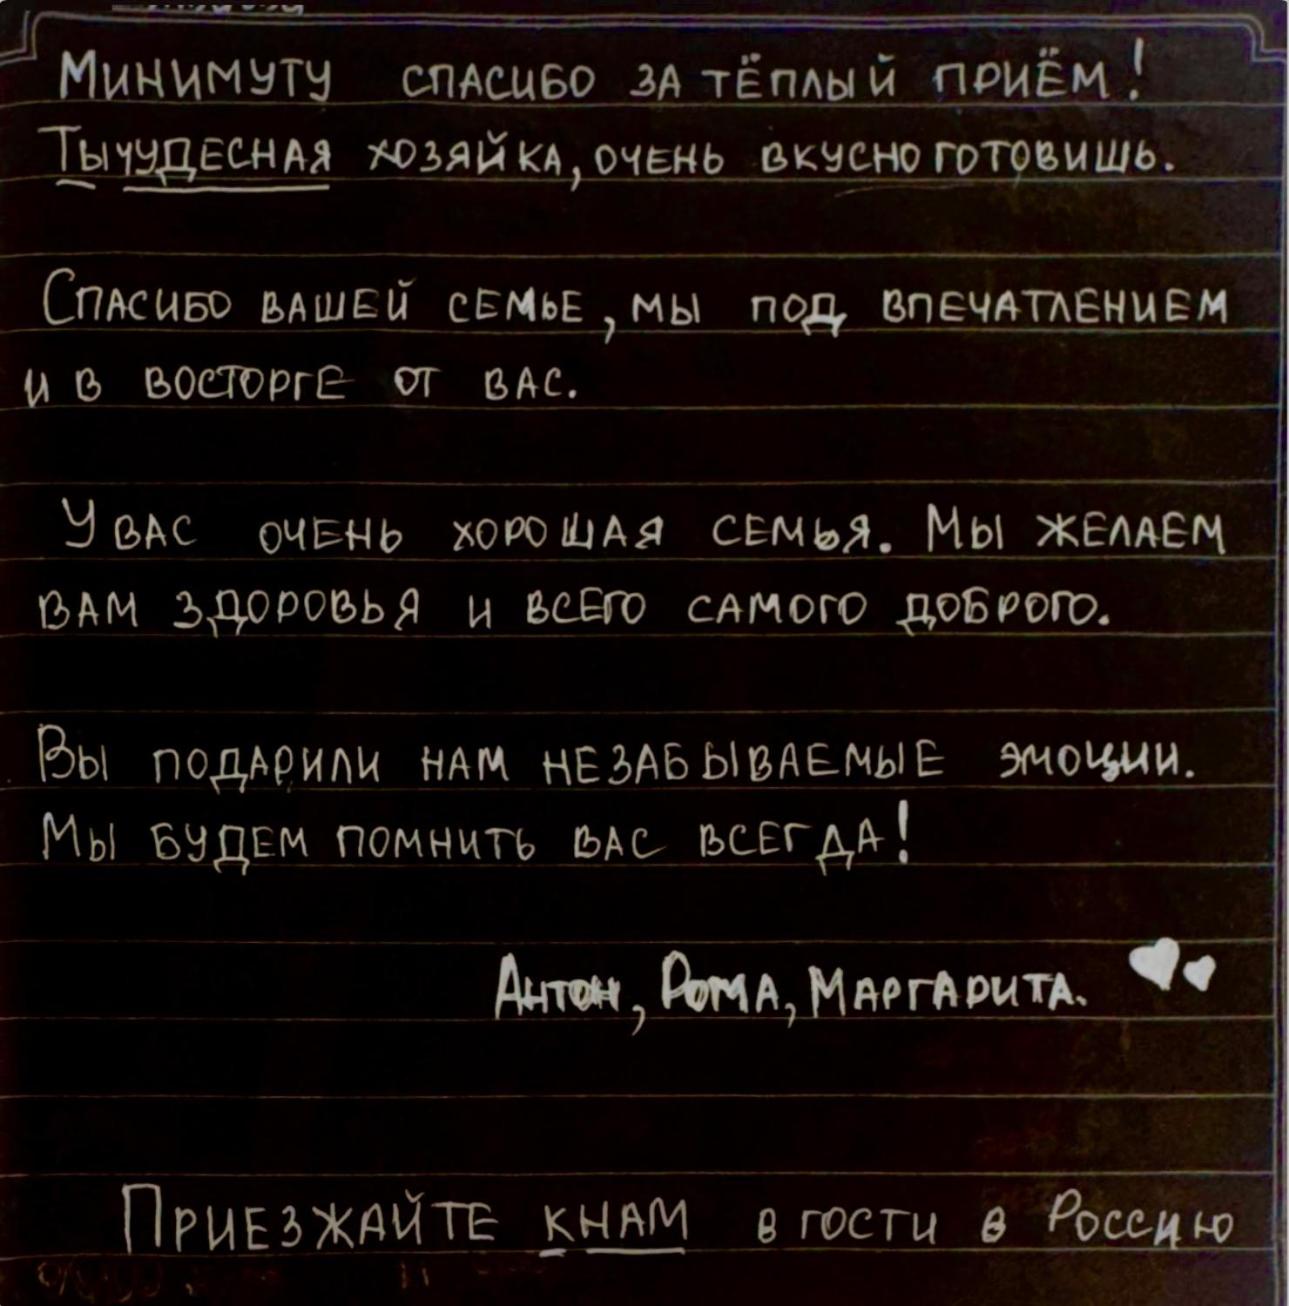 Минимуту спасибо за тёплый приём!
Ты чудесная хозяйка, очень вкусно готовишь.
Спасибо вашей семье, мы под впечатлением
и в восторге от вас.
У вас очень хорошая семья. Мы желаем
вам здоровья и всего самого доброго.
Вы подарили нам незабываемые эмоции.
Мы будем помнить вас всегда!
Антон, Рома, Маргарита.
Приезжайте к нам в гости в Россию